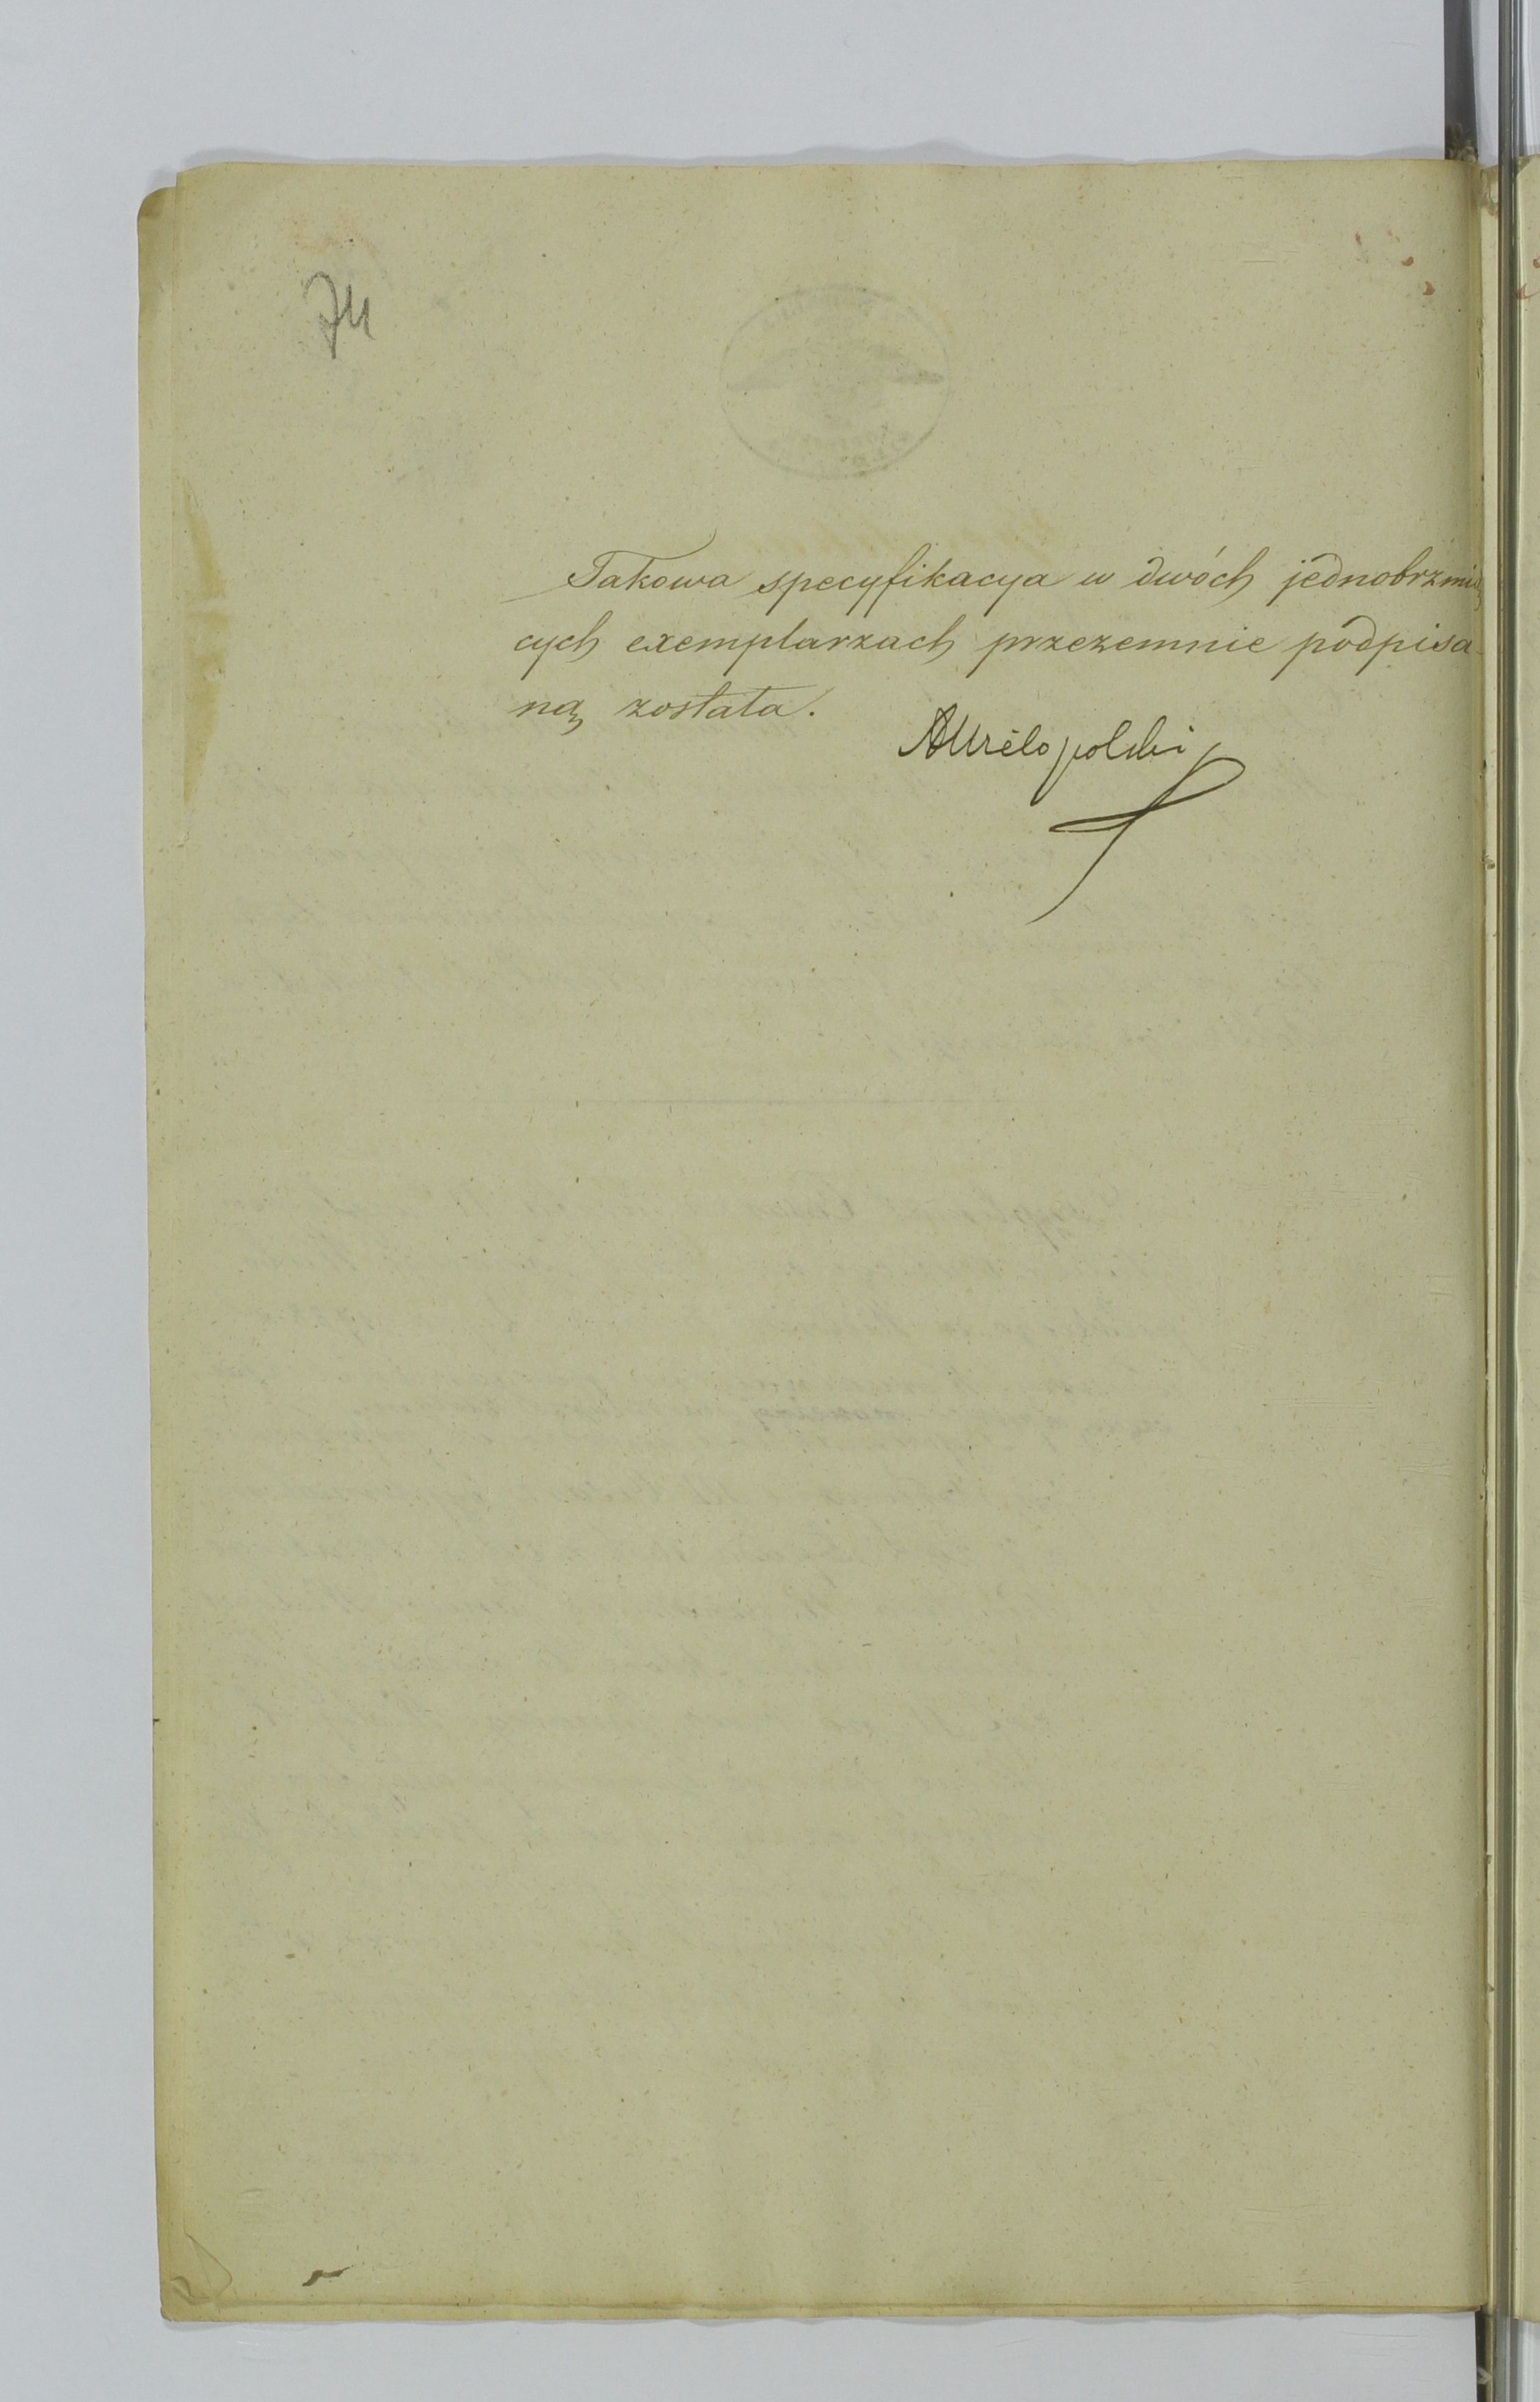 74
Takowa specyfikacya w dwóch jednobrzmią
cych exemplarzach przezemnie podpisa-
ną została.
AWielopolski